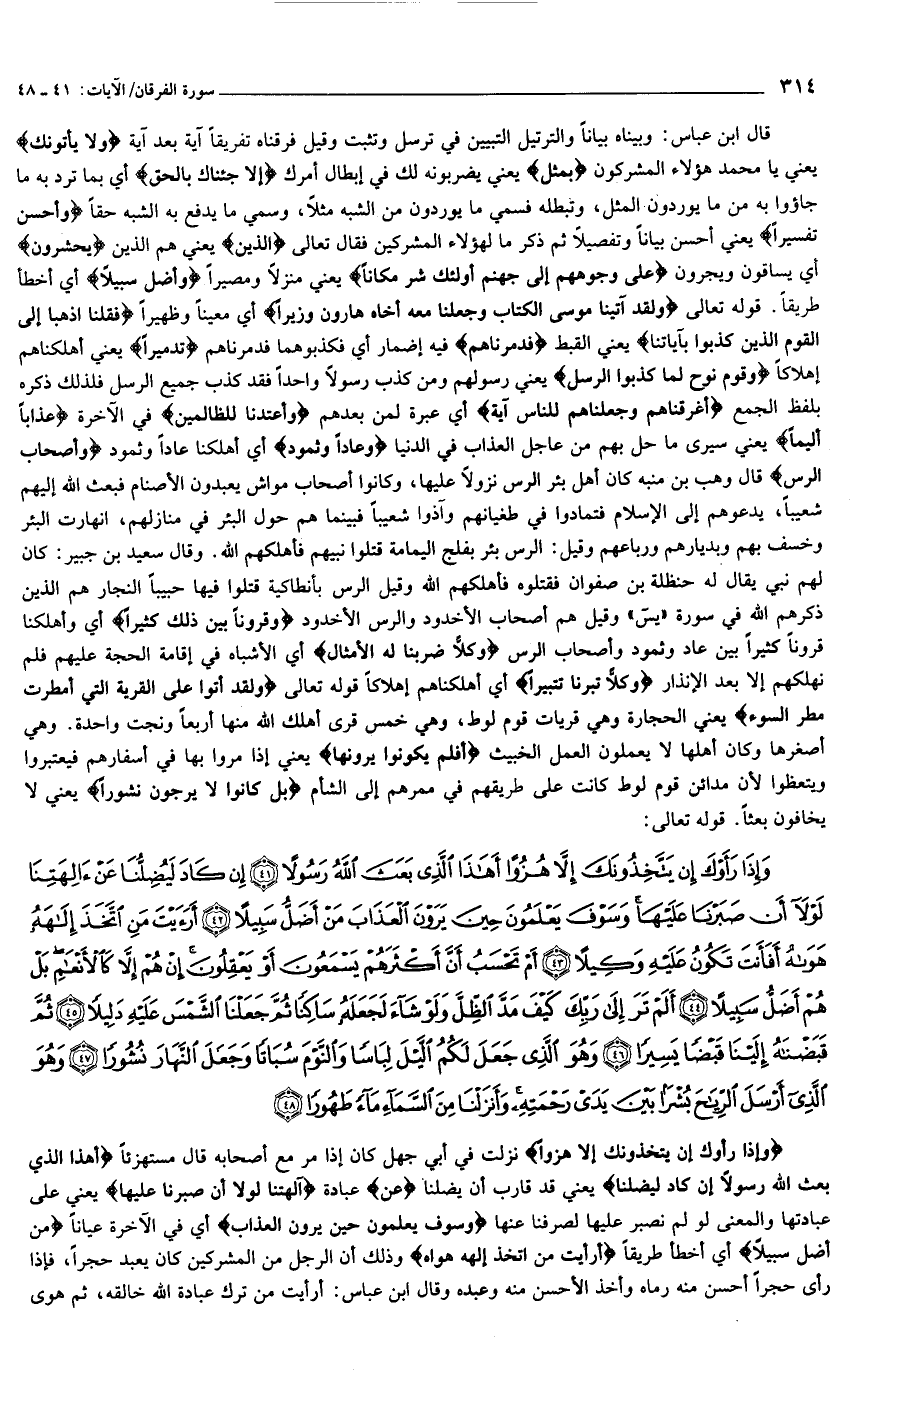 ٣١٤ سورة الفرقان/ الآيات: ٤١ ـ ٤٨
قال ابن عباس: وبيناه بياناً والترتيل التبيين في ترسل وتثبت وقيل فرقناه تفريقاً آية بعد آية ﴿ولا يأتونك﴾
يعني يا محمد هؤلاء المشركون ﴿بمثل﴾ يعني يضربونه لك في إبطال أمرك ﴿إلا جئناك بالحق﴾ أي بما ترد به ما
جاؤوا به من ما يوردون المثل، وتبطله فسمي ما يوردون من الشبه مثلاً، وسمي ما يدفع به الشبه حقاً ﴿وأحسن
تفسيراً﴾ يعني أحسن بياناً وتفصيلاً ثم ذكر ما لهؤلاء المشركين فقال تعالى ﴿الذين﴾ يعني هم الذين ﴿يحشرون﴾
أي يساقون ويجرون ﴿على وجوههم إلى جهنم أولئك شر مكاناً﴾ يعني منزلاً ومصيراً ﴿وأضل سبيلاً﴾ أي أخطأ
طريقاً. قوله تعالى ﴿ولقد آتينا موسى الكتاب وجعلنا معه أخاه هارون وزيراً﴾ أي معيناً وظهيراً ﴿فقلنا اذهبا إلى
القوم الذين كذبوا بآياتنا﴾ يعني القبط ﴿فدمرناهم﴾ فيه إضمار أي فكذبوهما فدمرناهم ﴿تدميراً﴾ يعني أهلكناهم
إهلاكاً ﴿وقوم نوح لما كذبوا الرسل﴾ يعني رسولهم ومن كذب رسولاً واحداً فقد كذب جميع الرسل فلذلك ذكره
بلفظ الجمع ﴿أغرقناهم وجعلناهم للناس آية﴾ أي عبرة لمن بعدهم ﴿وأعتدنا للظالمين﴾ في الآخرة ﴿عذاباً
أليماً﴾ يعني سيرى ما حل بهم من عاجل العذاب في الدنيا ﴿وعاداً وثمود﴾ أي أهلكنا عاداً وثمود ﴿وأصحاب
الرس﴾ قال وهب بن منبه كان أهل بئر الرس نزولاً عليها، وكانوا أصحاب مواش يعبدون الأصنام فبعث الله إليهم
شعيباً، يدعوهم إلى الإسلام فتمادوا في طغيانهم وآذوا شعيباً فبينما هم حول البئر في منازلهم، انهارت البئر
وخسف بهم وبديارهم ورباعهم وقيل: الرس بئر بفلج اليمامة قتلوا نبيهم فأهلكهم الله. وقال سعيد بن جبير: كان
لهم نبي يقال له حنظلة بن صفوان فقتلوه فأهلكهم الله وقيل الرس بأنطاكية قتلوا فيها حبيباً النجار هم الذين
ذكرهم الله في سورة «يسّ» وقيل هم أصحاب الأخدود والرس الأخدود ﴿وقروناً بين ذلك كثيراً﴾ أي وأهلكنا
قروناً كثيراً بين عاد وثمود وأصحاب الرس ﴿وكلًّا ضربنا له الأمثال﴾ أي الأشباه في إقامة الحجة عليهم فلم
نهلكهم إلا بعد الإنذار ﴿وكلًّا تبرنا تتبيراً﴾ أي أهلكناهم إهلاكاً قوله تعالى ﴿ولقد أتوا على القرية التي أمطرت
مطر السوء﴾ يعني الحجارة وهي قريات قوم لوط، وهي خمس قرى أهلك الله منها أربعاً ونجت واحدة. وهي
أصغرها وكان أهلها لا يعملون العمل الخبيث ﴿أفلم يكونوا يرونها﴾ يعني إذا مروا بها في أسفارهم فيعتبروا
ويتعظوا لأن مدائن قوم لوط كانت على طريقهم في ممرهم إلى الشأم ﴿بل كانوا لا يرجون نشوراً﴾ يعني لا
يخافون بعثاً. قوله تعالى:
وَإِذَا رَأَوْكَ إِن يَتَّخِذُونَكَ إِلَّا هُزُوًا أَهَٰذَا ٱلَّذِى بَعَثَ ٱللَّهُ رَسُولًا ﴿٤١﴾ إِن كَادَ لَيُضِلُّنَا عَنْ ءَالِهَتِنَا
لَوْلَآ أَن صَبَرْنَا عَلَيْهَا ۚ وَسَوْفَ يَعْلَمُونَ حِينَ يَرَوْنَ ٱلْعَذَابَ مَنْ أَضَلُّ سَبِيلًا ﴿٤٢﴾ أَرَءَيْتَ مَنِ ٱتَّخَذَ إِلَٰهَهُۥ
هَوَىٰهُ أَفَأَنتَ تَكُونُ عَلَيْهِ وَكِيلًا ﴿٤٣﴾ أَمْ تَحْسَبُ أَنَّ أَكْثَرَهُمْ يَسْمَعُونَ أَوْ يَعْقِلُونَ ۚ إِنْ هُمْ إِلَّا كَٱلْأَنْعَٰمِ ۖ بَلْ
هُمْ أَضَلُّ سَبِيلًا ﴿٤٤﴾ أَلَمْ تَرَ إِلَىٰ رَبِّكَ كَيْفَ مَدَّ ٱلظِّلَّ وَلَوْ شَآءَ لَجَعَلَهُۥ سَاكِنًا ثُمَّ جَعَلْنَا ٱلشَّمْسَ عَلَيْهِ دَلِيلًا ﴿٤٥﴾ ثُمَّ
قَبَضْنَٰهُ إِلَيْنَا قَبْضًا يَسِيرًا ﴿٤٦﴾ وَهُوَ ٱلَّذِى جَعَلَ لَكُمُ ٱلَّيْلَ لِبَاسًا وَٱلنَّوْمَ سُبَاتًا وَجَعَلَ ٱلنَّهَارَ نُشُورًا ﴿٤٧﴾ وَهُوَ
ٱلَّذِىٓ أَرْسَلَ ٱلرِّيَٰحَ بُشْرًۢا بَيْنَ يَدَىْ رَحْمَتِهِۦ ۚ وَأَنزَلْنَا مِنَ ٱلسَّمَآءِ مَآءً طَهُورًا ﴿٤٨﴾
﴿وإذا رأوك إن يتخذونك إلا هزواً﴾ نزلت في أبي جهل كان إذا مر مع أصحابه قال مستهزئاً ﴿أهذا الذي
بعث الله رسولاً إن كاد ليضلنا﴾ يعني قد قارب أن يضلنا ﴿عن﴾ عبادة ﴿آلهتنا لولا أن صبرنا عليها﴾ يعني على
عبادتها والمعنى لو لم نصبر عليها لصرفنا عنها ﴿وسوف يعلمون حين يرون العذاب﴾ أي في الآخرة عياناً ﴿من
أضل سبيلاً﴾ أي أخطأ طريقاً ﴿أرأيت من اتخذ إلهه هواه﴾ وذلك أن الرجل من المشركين كان يعبد حجراً، فإذا
رأى حجراً أحسن منه رماه وأخذ الأحسن منه وعبده وقال ابن عباس: أرأيت من ترك عبادة الله خالقه، ثم هوى